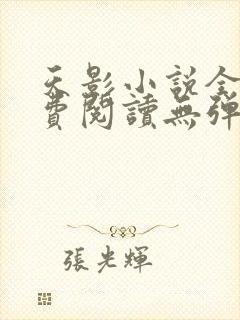 天影小說全
費閱讀無彈
張光輝